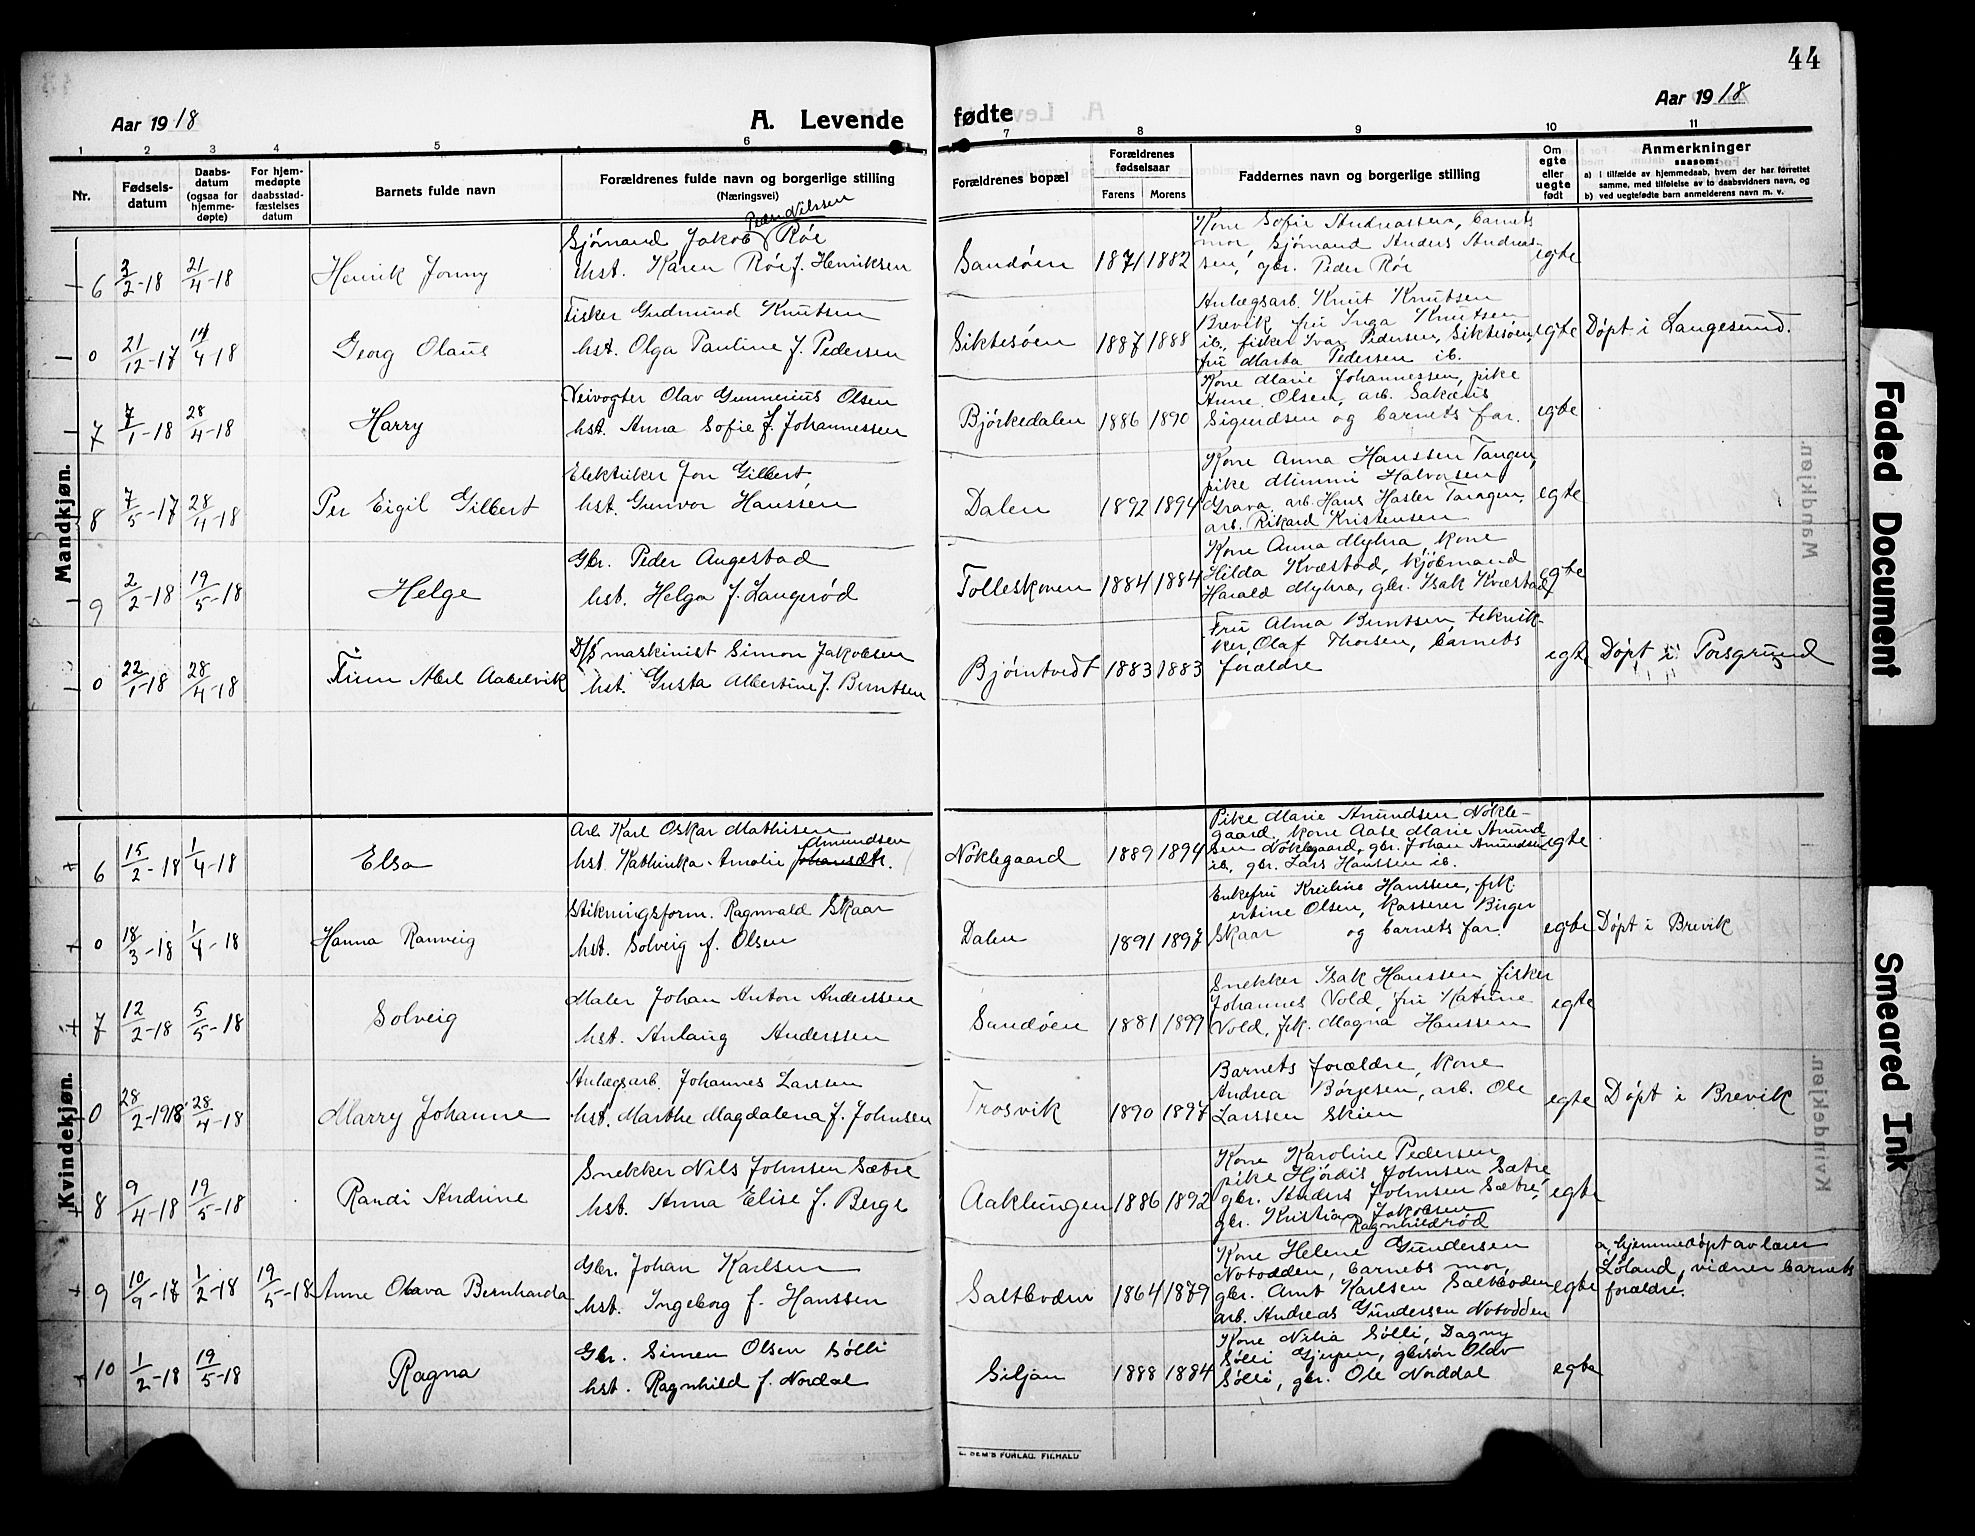 44
Aar 1918
A. Levende fødte
Aar 1918
1 2 3 4 5 6 7 8 9 10 11
Nr.
Fødsels-
datum
Daabs-
datum
(ogsaa for
hjemme-
døpte)
For hjem-
medøpte
daabsstad-
fæstelses
datum
Barnets fulde navn
Forældrenes fulde navn og borgerlige stilling
(Næringsvei)
Forældrenes bopæl
Forældrenes
fødselsaar
Farens Morens
Faddernes navn og borgerlige stilling
Om
egte
eller
uegte
født
Anmerkninger
saasom:
a) i tilfælde av hjemmedaab, hvem der har forrettet
samme, med tilføielse av to daabsvidners navn, og
b) ved uegtefødte barn anmelderens navn m. v.
Mandkjøn.
6 3/2-18 21/4-18 Henrik Jonny
Sjømand Jakob Peder Nilssen Røe
hst. Karen Røe f. Henriksen
Sandøen 1871 1882
Kone Sofie Andreassen, barnets
mor, Sjømand Anders Andreas-
sen, gbr. Peder Røe
egte
0 21/12-17 14/4-18 Georg Olaus
Fisker Gudmund Knutsen
hst. Olga Pauline f. Pedersen
Siktesøen 1887 1888
Anlægsarb. Knut Knutsen
Brevik fru Inga Knutsen
ib., fisker Ivar Pedersen, Siktesøen,
fru Marta Pedersen ib.
egte Døpt i Langesund.
7 7/1-18 28/4-18 Harry
Veivogter Olav Gunnerius Olsen
hst. Anna Sofie f. Johannessen
Bjørkedalen 1886 1890
Kone Marie Johannessen, pike
Anne Olsen, arb. Sakæus
Sigurdsen og barnets far.
egte
8 7/5-17 28/4-18 Per Eigil Gilbert
Elektriker Jon Gilbert,
hst. Gunvor Hanssen
Dalen 1892 1894
Kone Anna Hanssen Tangen,
pike Mimmi Halvorsen
Grava, arb. Hans Hasler Tangen,
arb. Rikard Kristensen
egte
9 2/2-18 19/5-18 Helge
Gbr. Peder Augestad
hst. Helga f. Langerød
Tolleskoven 1884 1884
Kone Anna Myhra, kone
Hilda Kvæstad, kjøbmand
Harald Myhra, gbr. Isak Kvæstad
egte
0 22/1-18 28/4-18 Finn Abel Aabelvik
D/S maskinist Simon Jakobsen
hst. Gusta Albertine f. Berntsen
Bjørntvedt 1883 1883
Fru Alma Berntsen, teknik-
ker, Olaf Thorsen, barnets
forældre
egte Døpt i Porsgrund
Kvindekjøn.
6 15/2-18 1/4-18 Elsa
Arb. Karl Oskar Mathisen
Amundsen
hst. Kathinka Amalie
Nøklegaard 1889 1894
Pike Marie Anundsen Nøkle-
gaard, kone Aase Marie Anund-
sen Nøklegaard, gbr. Johan Anundsen
ib., gbr. Lars Hanssen ib.
egte
0 18/3-18 1/4-18 Hanna Ranveig
Stikningsform. Ragnvald Skaar
hst. Solveig f. Olsen
Dalen 1891 1897
Enkefru Kristine Hanssen, frk.
ertine Olsen, kasserer Birger
Skaar og barnets far.
egte Døpt i Brevik
7 12/2-18 5/5-18 Solveig
Maler Johan Anton Anderssen
hst. Anlaug Anderssen
Sandøen 1881 1899
Snekker Isak Hanssen fisker
Johannes Vold, fru Katrine
Vold, frk. Magna Hanssen
egte
0 28/2-1918 28/4-18 Marry Johanne
Anlægsarb. Johannes Larssen
hst. Marthe Magdalena f. Johnsen
Trosvik 1890 1897
Barnets forældre, kone
Andrea Børjesen, arb. Ole
Larssen Skien
egte Døpt i Brevik
8 9/4-18 19/5-18 Randi Andrine
Snekker Nils Johnsen Sætre
hst. Anna Elise f. Berge
Aaklungen 1886 1892
Kone Karoline Pedersen
pike Hjørdis Johnsen Sætre,
gbr. Anders Johnsen Sætre,
gbr. Kristian Jakobsen
Ragnhildrød
egte
9 10/9-17 1/2-18 19/5-18 Anne Olava Bernharda
Gbr. Johan Karlsen
hst. Ingeborg f. Hanssen
Saltboden 1864 1879
Kone Helene Gundersen
Notodden, barnets mor,
gbr. Amt Karlsen Saltboden
arb. Andreas Gundersen Notodden
egte
a, hjemmedøpt av lærer
Løland, vidner barnets
forældre.
10 1/2-18 19/5-18 Ragna
Gbr. Simen Olsen Sølli
hst. Ragnhild f. Nordal
Siljan 1888 1884
Kone Nilia Sølli, Dagny
Sølli Gjerpen, gbrsøn Olav
Sølli, gbr. Ole Norddal
egte
E. SEM'S FORLAG, FR.HALD
Faded Document
Smeared Ink